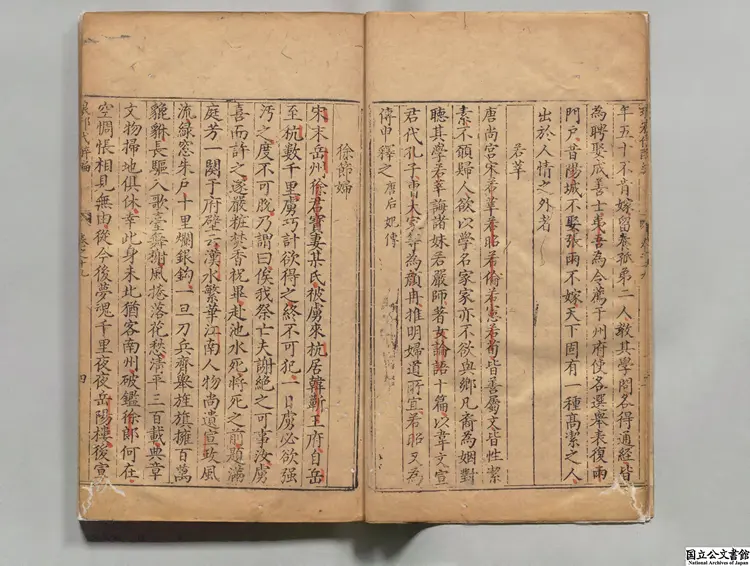 年五十不肯嫁留養孤弟二人教其學問名得通經皆
為聘娶成善士 吾為令薦于州府使各選舉表復兩
門戶昔陽城不娶張雨不嫁天下固有一種高潔之人
出於人情之外者
若莘
唐尚宮宋若莘若昭若倫若憲若荀皆善屬文皆性潔
素不願歸人欲以學名家家亦不欲與鄉凡裔為姻對
聽其學若莘誨諸妹若嚴師著女論語十篇以韋文宣
君代孔子曹大家等為顏冉推明婦道所宜若昭又為
傳申釋之 唐后妃傳
徐節婦
宋末岳州徐君寶妻某氏被虜來杭居韓蘄王府自岳
至杭數千里虜巧計欲得之終不可犯一日虜必欲强
汚之度不可脫乃謂曰俟我祭亡夫謝絕之可事汝虜
喜而許之遂嚴粧焚香祝畢赴池水死將死之前題滿
庭芳一闋于府壁云漢水繁華江南人物尚遺宣政風
流綠窓朱戶十里爛銀鈎一旦刀兵齊舉旌旗擁百萬
貔貅長驅入歌臺舞榭風捲落花愁清平三百載典章
文物掃地俱休幸此身未北猶客南州破鑑徐郎何在
空惆悵相見無由從今後夢魂千里夜夜岳陽樓後宣
卷之九 四
国立公文書館
National Archives of Japan